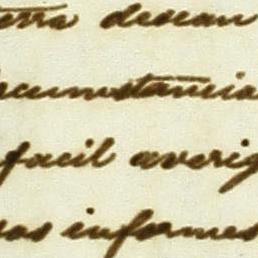 erra desean
rcunstancia
facil averig
vas informes